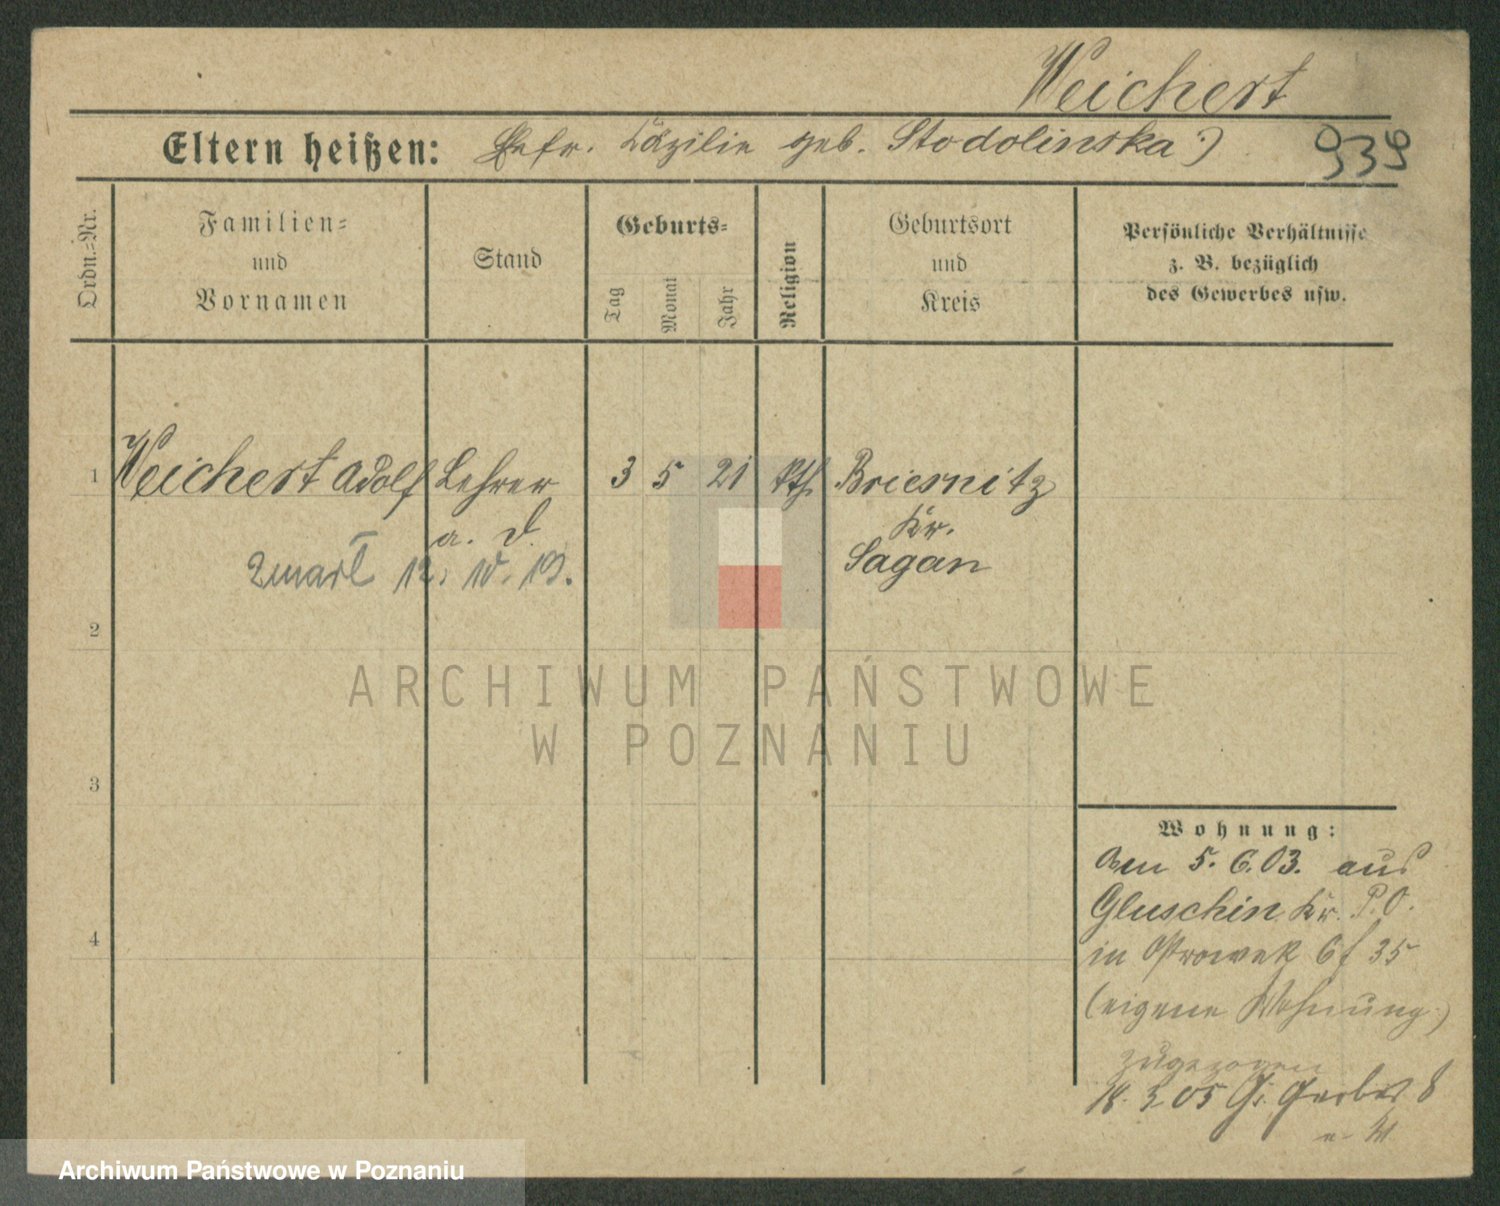 Weichert
Eltern heißen: Ehefr. Käzilie geb. Stodolinska)
939
Ordn.-Nr.
Familien-
und
Vornamen
Stand
Geburts-
Tag
Monat
Jahr
Religion
Geburtsort
und
Kreis
Persönliche Verhältnisse
z. B. bezüglich
des Gewerbes usw.
1 Weichert Adolf Lehrer 3 5 21 kth. Briesnitz
a. D. Kr.
Sagan
Zmarł 12. 10. 19.
2
ARCHIWUM PAŃSTWOWE
W POZNANIU
3
4
Wohnung:
den 5. 6. 03. aus
Gluschin Kr. P. O.
in Ostrowek 6 f 35
(eigene Wohnung)
zugezogen
18. 3 05 Gr. Gerber 8
Archiwum Państwowe w Poznaniu